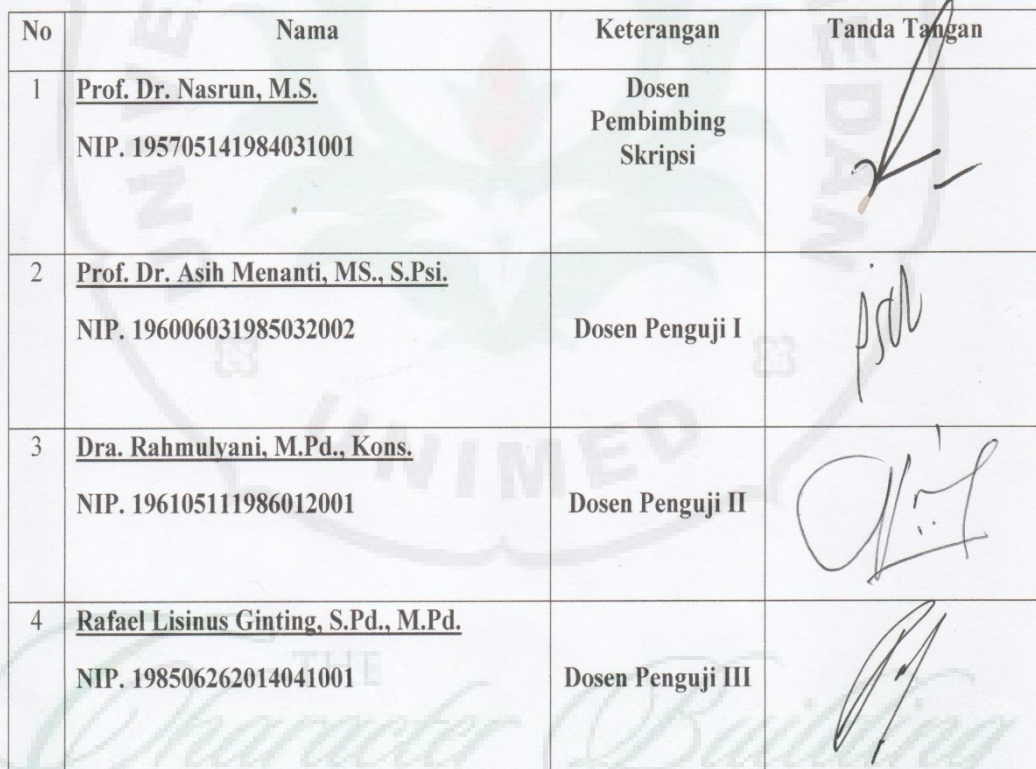 No Nama Keterangan Tanda Tangan
1 Prof. Dr. Nasrun, M.S.
NIP. 195705141984031001
Dosen
Pembimbing
Skripsi
2 Prof. Dr. Asih Menanti, MS., S.Psi.
NIP. 196006031985032002
Dosen Penguji I
3 Dra. Rahmulyani, M.Pd., Kons.
NIP. 196105111986012001
Dosen Penguji II
4 Rafael Lisinus Ginting, S.Pd., M.Pd.
NIP. 198506262014041001
Dosen Penguji III
UNIMED
THE
Character Building